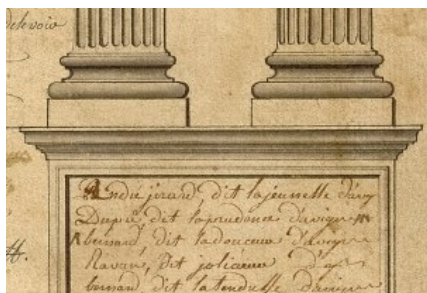 devoir
André jirard, dit lajeunesse d'avig
Dupui, dit laprudence d'avignon
A bernard, dit ladouceur d'avigno
Ravau, dit joli cœur d'avi
bernard dit latendresse d'avigno